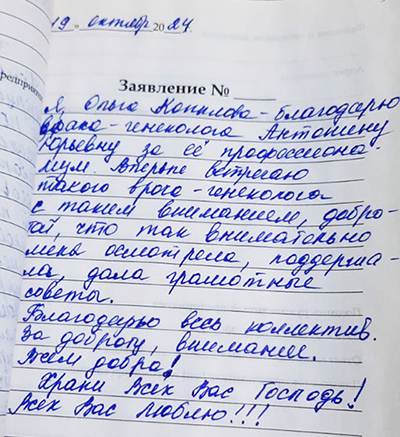 19 октябр 20 24
едприятия
Заявление №
Я, Ольга Копылова - благодарю
врача - генеколога Антонину
Юрьевну за её профессиона-
лизм. Впервые встречаю
такого врача - генеколога
с таким вниманием, добро-
той, что так внимательно
меня осмотрела, поддержа-
ла, дала грамотные
советы.
Благодарю весь коллектив.
За доброту, внимание.
Всем добра!
Храни Всех Вас Господь!
Всех Вас люблю!!!